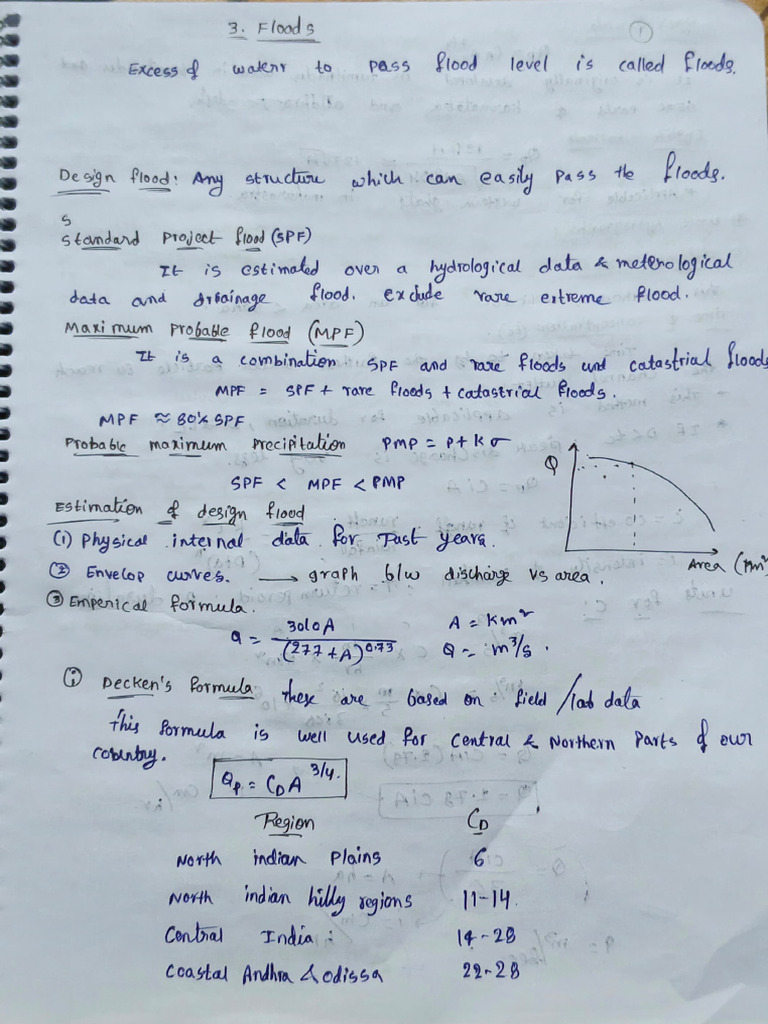 3. Floods
1
Excess of waterr to pass flood level is called floods.
Design flood: Any structure which can easily pass the floods.
s
Standard Project flood (SPF)
It is estimated over a hydrological data & meterological
data and drainage flood. exclude rare extreme flood.
Maximum Probable flood (MPF)
It is a combination SPF and rare floods and catastrial floods
MPF = SPF + rare floods + catastrial floods.
MPF ≈ 80% SPF
Probable maximum Precipitation PMP = P + K σ
SPF < MPF < PMP
Q
Estimation of design flood
(1) Physical internal data for Past years.
Area (Km²
② Envelop curves. → graph b/w discharge vs area.
③ Emperical formula.
Q = 3010A / (277+A)^0.73 A = Km²
Q = m³/s.
(i) Decken's formula: these are based on field/lab data
This formula is well used for central & Northern Parts of our
country.
Qp = C_D A^3/4.
Region C_D
North indian Plains 6
North indian hilly regions 11-14.
Central India: 14-28
Coastal Andhra & odissa 22-28